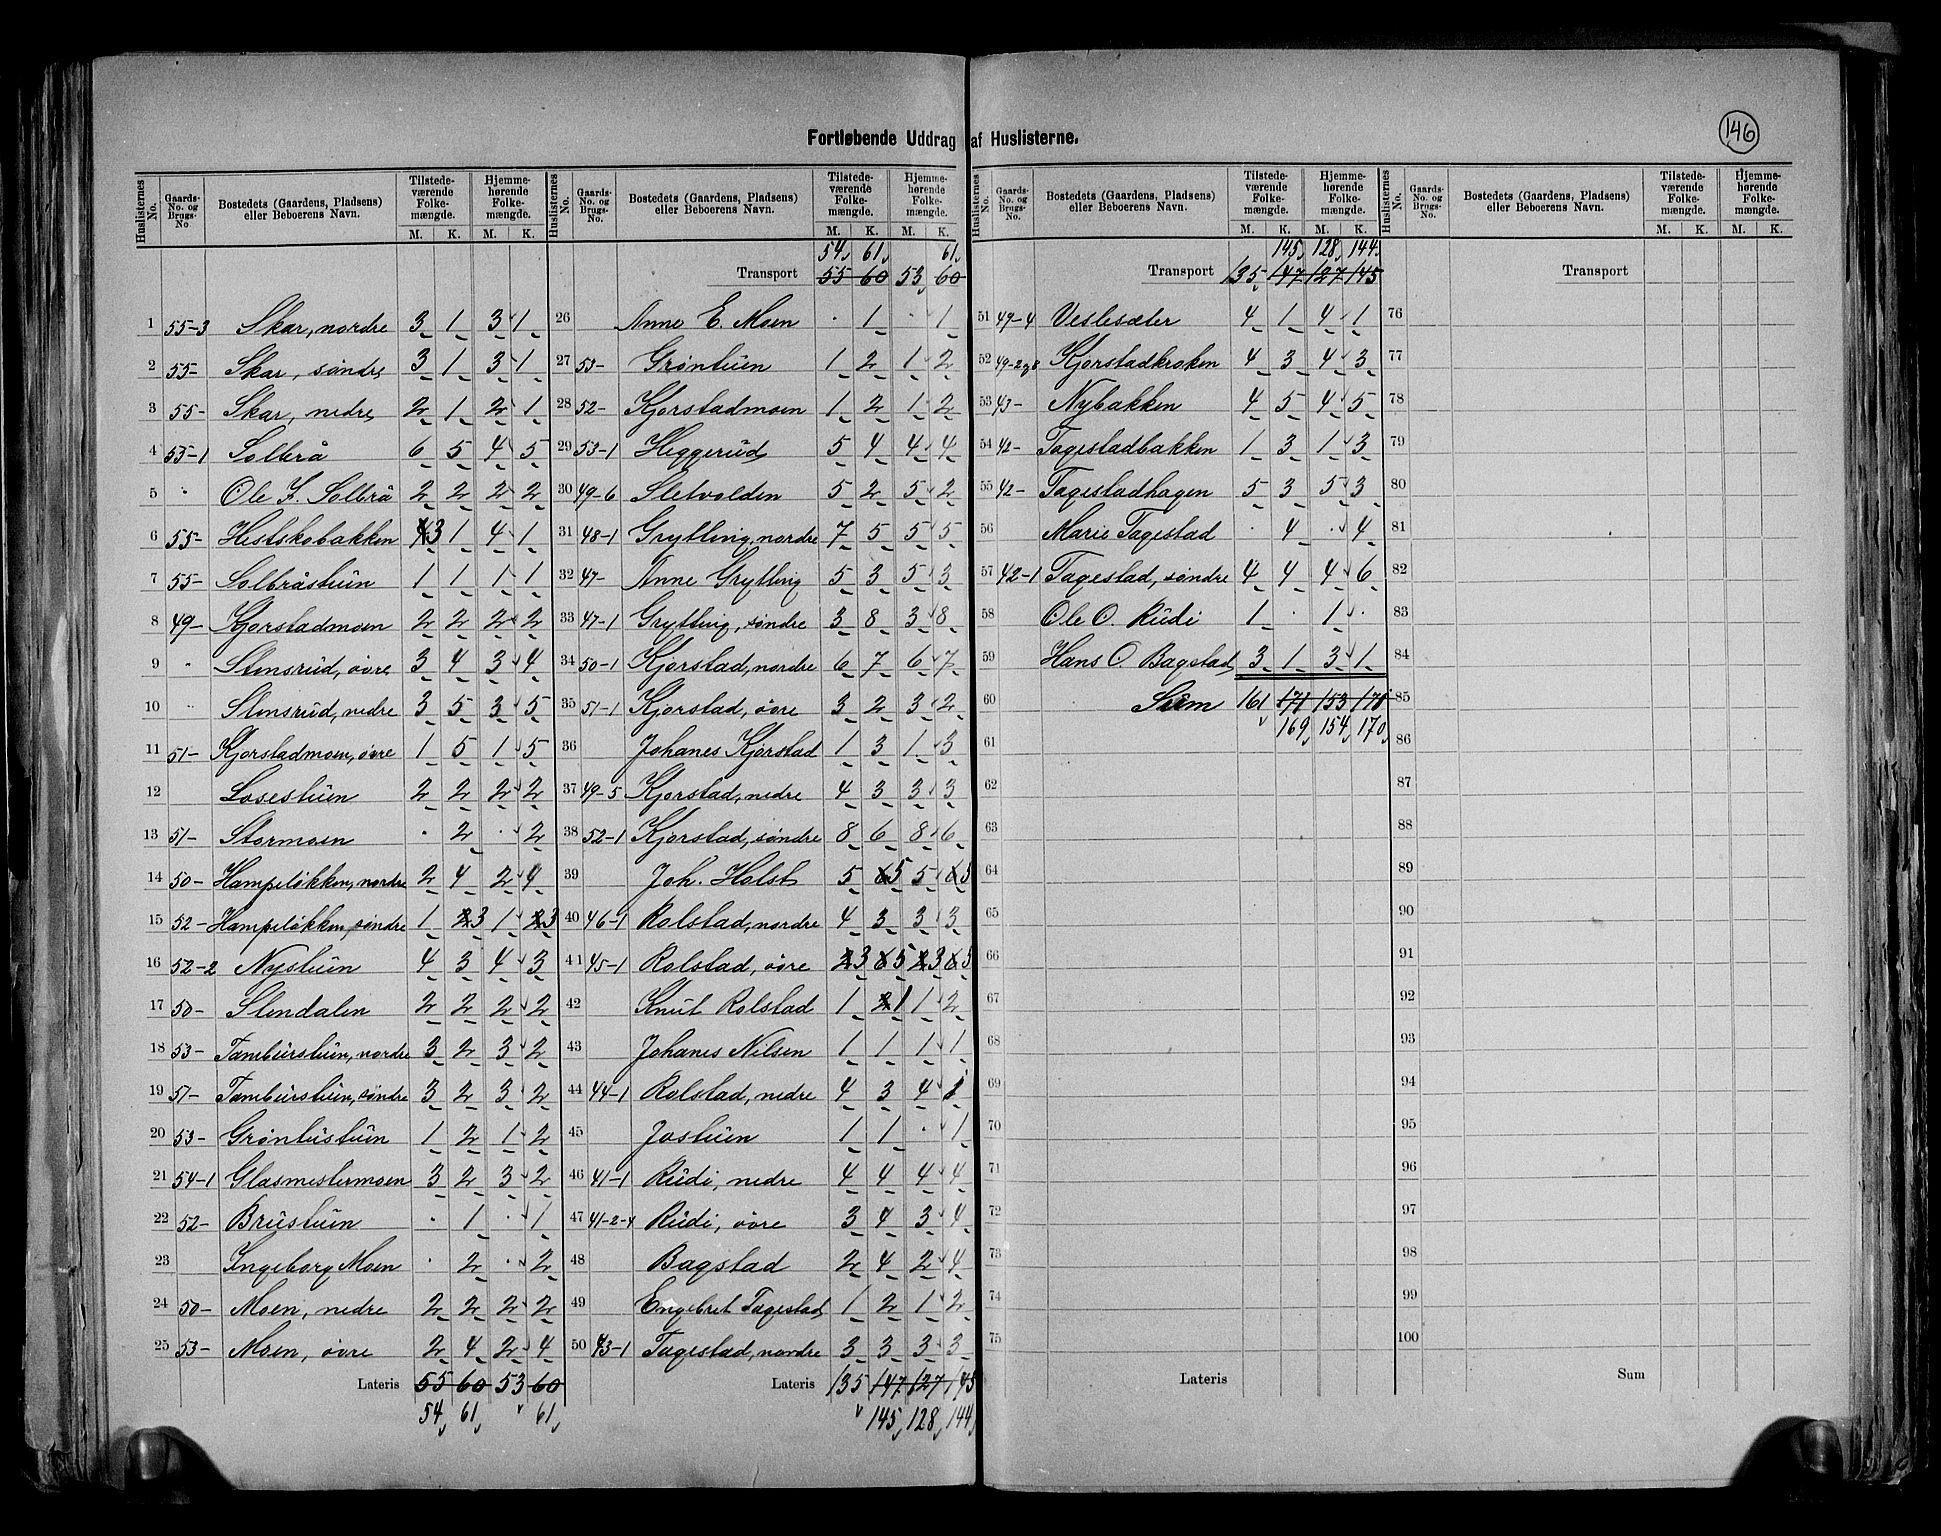 146
Fortløbende Uddrag af Huslisterne.
Huslisternes No. | Gaards-No. og Brugs-No | Bostedets (Gaardens, Pladsens) eller Beboerens Navn. | Tilstede-værende Folke-mængde. M. K. | Hjemme-hørende Folke-mængde. M. K.
1 55-3 Skar, nordre 3 1 3 1
2 55- Skar, søndre 3 1 3 1
3 55- Skar, nedre 2 1 2 1
4 55-1 Solbrå 6 5 4 5
5 " Ole J. Solbrå 2 2 2 2
6 55- Hestskobakken 3 1 4 1
7 55- Solbråstuen 1 1 1 1
8 49- Kjorstadmoen 2 2 2 2
9 " Stensrud, øvre 3 4 3 4
10 " Stensrud, nedre 3 5 3 5
11 51- Kjorstadmoen, øvre 1 5 1 5
12 Losestuen 2 2 2 2
13 51- Stormoen · 2 · 2
14 50- Hampeløkken, nordre 2 4 2 4
15 52- Hampeløkken, søndre 1 3 1 3
16 52-2 Nystuen 4 3 4 3
17 50- Stendalen 2 2 2 2
18 53- Tamburstuen, nordre 3 2 3 2
19 51- Tamburstuen, søndre 3 2 3 2
20 53- Grøntustuen 1 2 1 2
21 54-1 Glasmestermoen 3 2 3 2
22 52- Brustuen · 1 · 1
23 Ingeborg Moen · 2 · 2
24 50- Moen, nedre 2 2 2 2
25 53- Moen, øvre 2 4 2 4
Lateris 55 60 53 60
54, 61, 61,
Huslisternes No. | Gaards-No. og Brugs-No. | Bostedets (Gaardens, Pladsens) eller Beboerens Navn. | Tilstede-værende Folke-mængde. M. K. | Hjemme-hørende Folke-mængde. M. K.
54, 61, 61,
Transport 55 60 53, 60
26 Anne E. Moen · 1 · 1
27 53- Grøntuen 1 2 1 2
28 52- Kjorstadmoen 1 2 1 2
29 53-1 Heggerud 5 4 4 4
30 49-6 Sletvolden 5 2 5 2
31 48-1 Grytting, nordre 7 5 5 5
32 47- Anne Grytting 5 3 5 3
33 47-1 Grytting, søndre 3 8 3 8
34 50-1 Kjorstad, nordre 6 7 6 7
35 51-1 Kjorstad, øvre 3 2 3 2
36 Johanes Kjorstad 1 3 1 3
37 49-5 Kjorstad, nedre 4 3 3 3
38 52-1 Kjorstad, søndre 8 6 8 6
39 Joh. Holst 5 5 5 5
40 46-1 Rolstad, nordre 4 3 3 3
41 45-1 Rolstad, øvre 3 5 3 5
42 Knut Rolstad 1 1 1 2
43 Johanes Nilsen 1 1 1 1
44 44-1 Rolstad, nedre 4 3 4 1
45 Jostuen 1 1 · 1
46 41-1 Rudi, nedre 4 4 4 4
47 41-2-4 Rudi, øvre 3 4 3 4
48 Bagstad 2 4 2 4
49 Engebret Tagestad 1 2 1 2
50 43-1 Tagestad, nordre 3 3 3 3
Lateris 135 147 127 145
145, 128, 144,
Huslisternes No. | Gaards-No. og Brugs-No. | Bostedets (Gaardens, Pladsens) eller Beboerens Navn. | Tilstede-værende Folke-mængde. M. K. | Hjemme-hørende Folke-mængde. M. K.
145, 128, 144,
Transport 135 147 127 145
51 49-4 Veslesæter 4 1 4 1
52 49-2og8 Kjorstadkroken 4 3 4 3
53 43- Nybakken 4 5 4 5
54 42- Tagestadbakken 1 3 1 3
55 42- Tagestadhagen 5 3 5 3
56 Marie Tagestad · 4 · 4
57 42-1 Tagestad, søndre 4 4 4 6
58 Ole O. Rudi 1 · 1 ·
59 Hans O. Bagstad 3 1 3 1
60 Sum 161 171 153 171
61 169, 154, 170,
62
63
64
65
66
67
68
69
70
71
72
73
74
75
Lateris
Huslisternes No. | Gaards-No. og Brugs-No. | Bostedets (Gaardens, Pladsens) eller Beboerens Navn. | Tilstede-værende Folke-mængde. M. K. | Hjemme-hørende Folke-mængde. M. K.
Transport
76
77
78
79
80
81
82
83
84
85
86
87
88
89
90
91
92
93
94
95
96
97
98
99
100
Sum